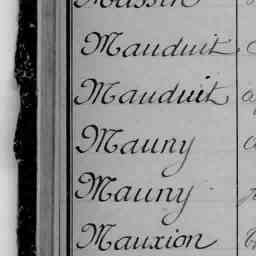 Massin
Mauduit
Mauduit
Mauny
Mauny
Mauxion